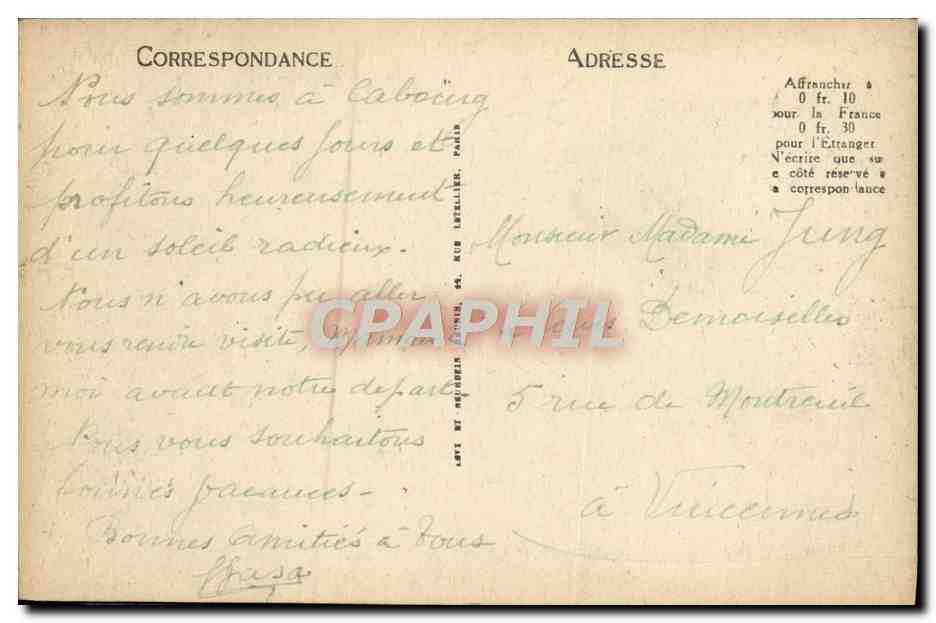 CORRESPONDANCE
Nous sommes à Cabourg
pour quelques jours et
profitons heureusement
d'un soleil radieux.
Nous n'avons pu aller
vous rendre visite,
moi avant notre depart
Nous vous souhaitons
bonnes vacances -
Bonnes amitiés à tous
LEVY ET NEURDEIN REUNIS, 44, RUE LETELLIER, PARIS
ADRESSE
Affranchir à
0 fr. 10
pour la France
0 fr. 30
pour l'Étranger
N'écrire que sur
e côté réservé à
a correspondance
Monsieur Madame Jung
Demoiselles
5 rue de Montreuil
à Vincennes
CPAPHIL